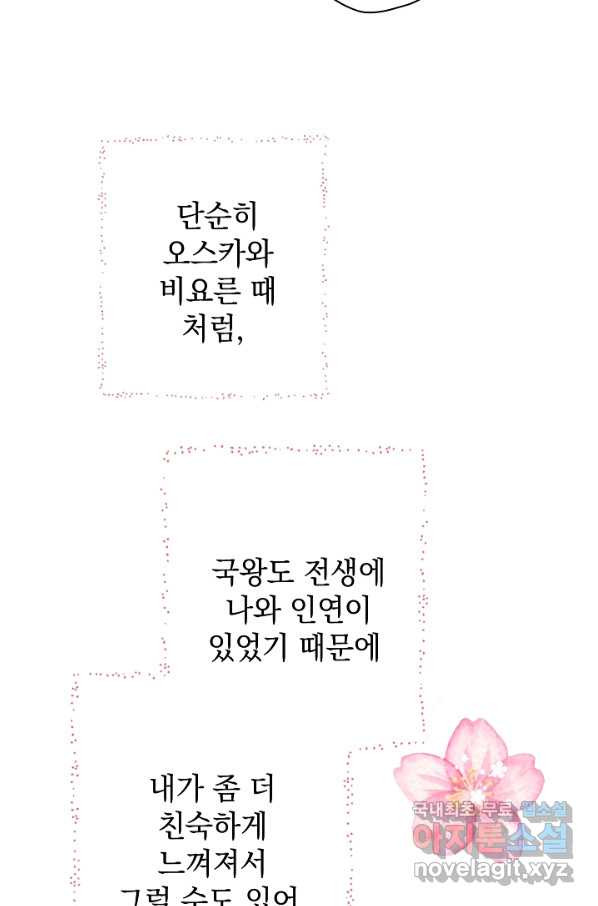 단순히
오스카와
비요른 때
처럼,
국왕도 전생에
나와 인연이
있었기 때문에
내가 좀 더
친숙하게
느껴져서
그럴 수도 있어
국내최초 무료 웹소설
아지툰소설
novelagit.xyz